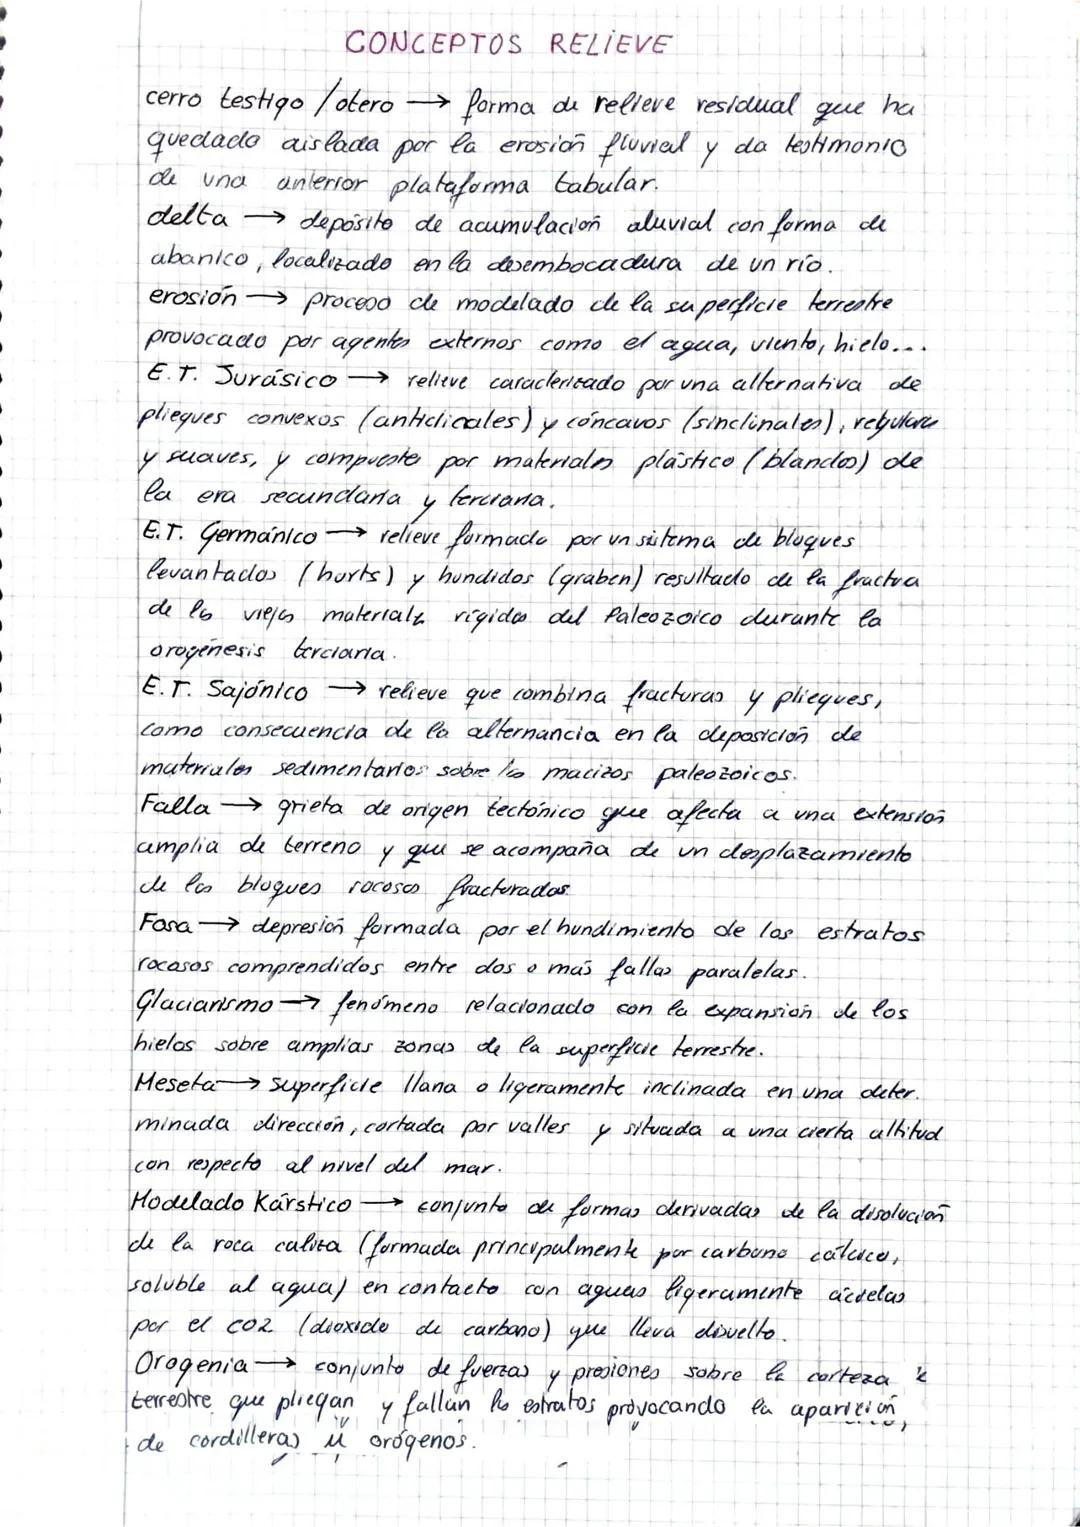 CONCEPTOS RELIEVE
cerro testigo / otero → forma de relieve residual que ha
quedado aislada por la erosión fluvial y da testimonio
de una anterior plataforma tabular.
delta → depósito de acumulación aluvial con forma de
abanico, localizado en la desembocadura de un río.
erosión → proceso de modelado de la superficie terrestre
provocado por agentes externos como el agua, viento, hielo...
E.T. Jurásico → relieve caracterizado por una alternativa de
pliegues convexos (anticlinales) y cóncavos (sinclinales), regulares
y suaves, y compuesto por materiales plástico (blandos) de
la era secundaria y terciaria.
E.T. Germánico → relieve formado por un sistema de bloques
levantados (horts) y hundidos (graben) resultado de la fractura
de los viejos materiales rígidos del Paleozoico durante la
orogénesis terciaria.
E.T. Sajónico → relieve que combina fracturas y pliegues,
como consecuencia de la alternancia en la deposición de
materiales sedimentarios sobre los macizos paleozoicos.
Falla → grieta de origen tectónico que afecta a una extensión
amplia de terreno y que se acompaña de un desplazamiento
de los bloques rocosos fracturados
Fosa → depresión formada por el hundimiento de los estratos
rocosos comprendidos entre dos o más fallas paralelas.
Glaciarismo → fenómeno relacionado con la expansión de los
hielos sobre amplias zonas de la superficie terrestre.
Meseta → superficie llana o ligeramente inclinada en una deter.
minada dirección, cortada por valles y situada a una cierta altitud
con respecto al nivel del mar.
Modelado Kárstico → conjunto de formas derivadas de la disolución
de la roca caliza (formada principalmente por carbono cálcico,
soluble al agua) en contacto con aguas ligeramente ácidas
por el CO2 (dioxido de carbono) que lleva disuelto.
Orogenia → conjunto de fuerzas y presiones sobre la corteza
terrestre que pliegan y fallan los estratos provocando la aparición,
de cordilleras u orógenos.